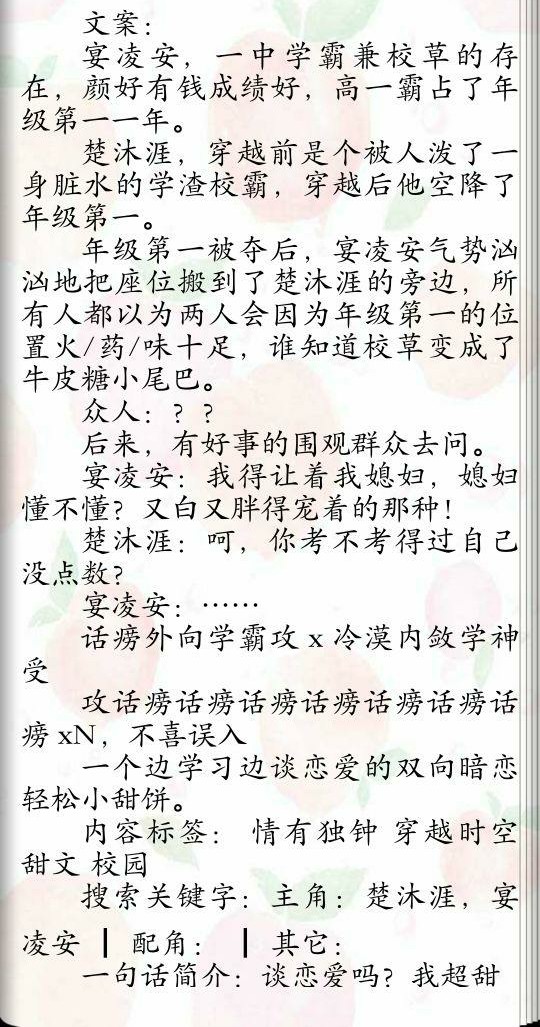 文案：
宴凌安，一中学霸兼校草的存
在，颜好有钱成绩好，高一霸占了年
级第一一年。
楚沐涯，穿越前是个被人泼了一
身脏水的学渣校霸，穿越后他空降了
年级第一。
年级第一被夺后，宴凌安气势汹
汹地把座位搬到了楚沐涯的旁边，所
有人都以为两人会因为年级第一的位
置火/药/味十足，谁知道校草变成了
牛皮糖小尾巴。
众人：？？
后来，有好事的围观群众去问。
宴凌安：我得让着我媳妇，媳妇
懂不懂？又白又胖得宠着的那种！
楚沐涯：呵，你考不考得过自己
没点数？
宴凌安：……
话痨外向学霸攻 x 冷漠内敛学神
受
攻话痨话痨话痨话痨话痨话痨话
痨 xN，不喜误入
一个边学习边谈恋爱的双向暗恋
轻松小甜饼。
内容标签： 情有独钟 穿越时空
甜文 校园
搜索关键字：主角：楚沐涯，宴
凌安 ┃ 配角： ┃ 其它：
一句话简介：谈恋爱吗？我超甜